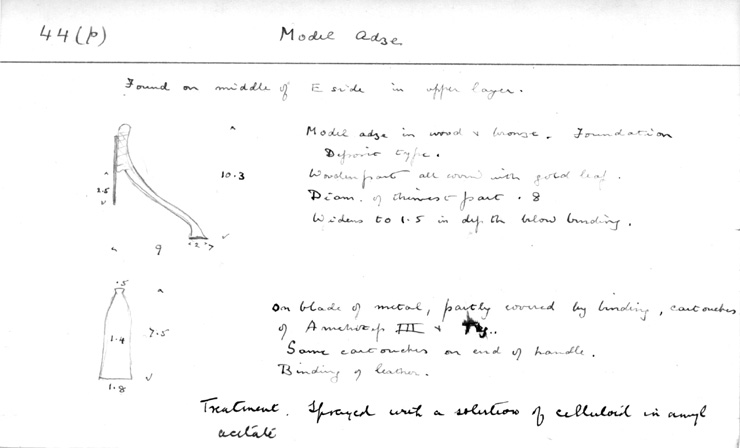 44(p) Model adze
Found on middle of E side in upper layer.
Model adze in wood & bronze. Foundation
Deposit type.
Wooden part all covd with gold leaf.
Diam. of thinnest part .8
Widens to 1.5 in depth blow binding.
10.3
3.5
9
.2
.7
On blade of metal, partly covered by binding, cartouches
of Amenhotep III &
Same cartouches on end of handle.
Binding of leather.
.5
1.4
7.5
1.8
Treatment. Sprayed with a solution of celluloid in amyl
acetate